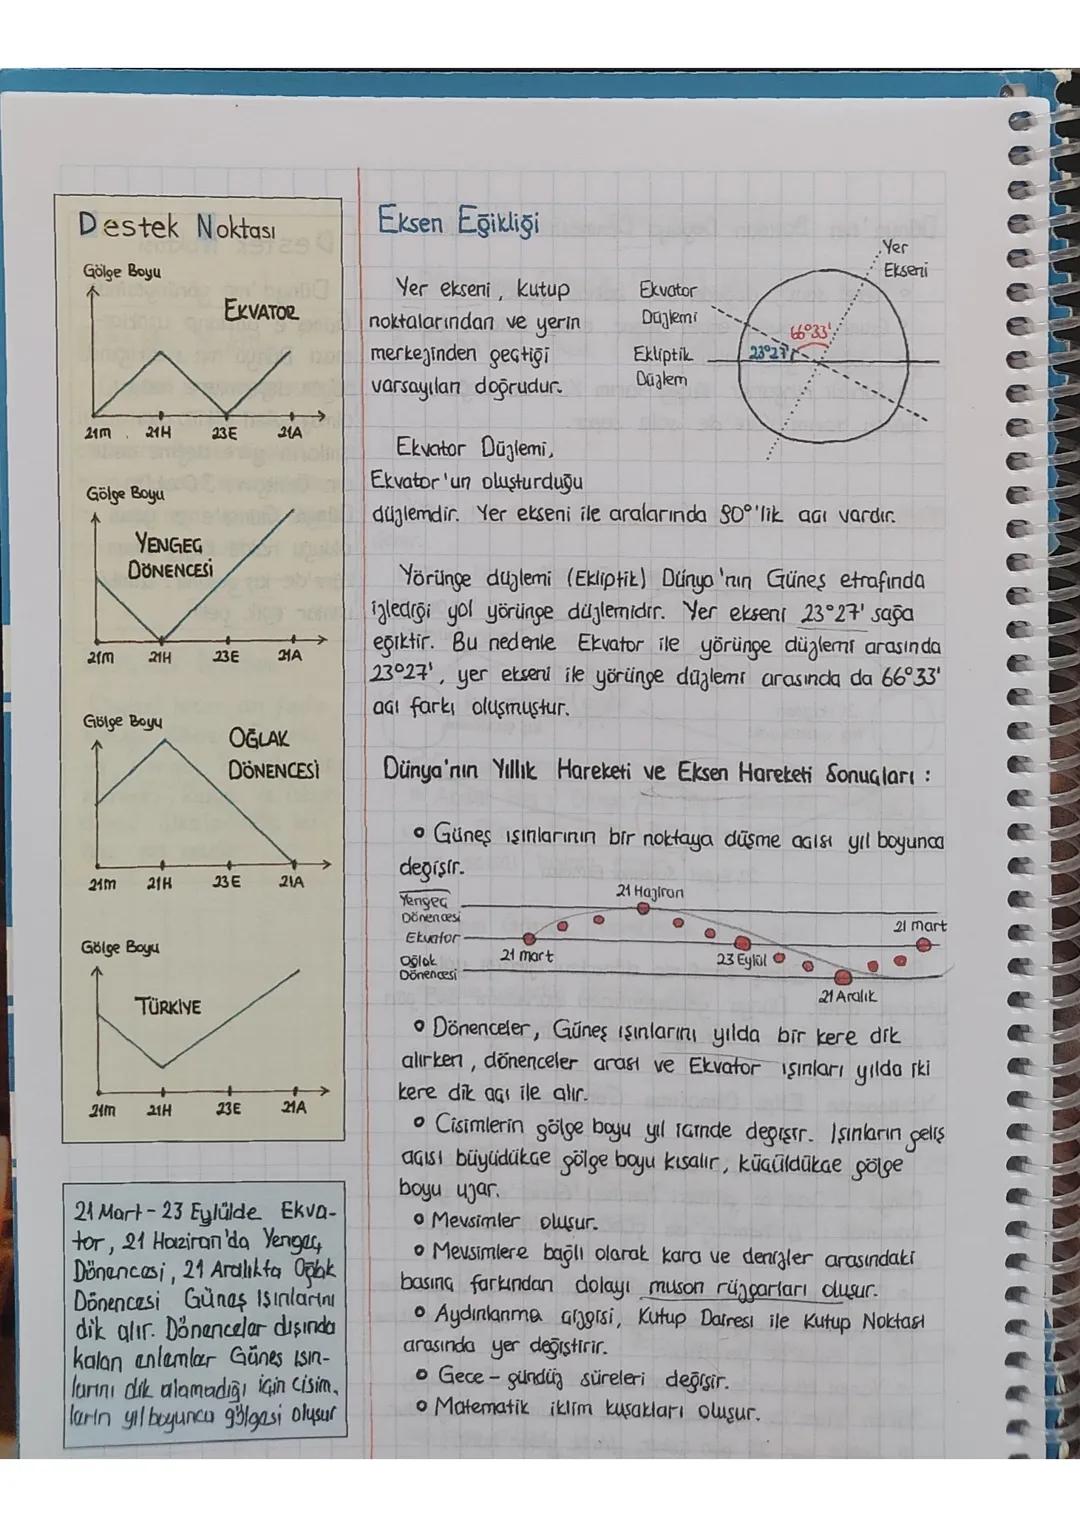 Destek Noktası
Gölge Boyu
EKVATOR
21m 21H 23E 21A
Gölge Boyu
YENGEÇ
DÖNENCESİ
21m 21H 23E 21A
Gölge Boyu
OĞLAK
DÖNENCESİ
21m 21H 23E 21A
Gölge Boyu
TÜRKİYE
21m 21H 23E 21A
21 Mart - 23 Eylülde Ekva-
tor, 21 Haziran'da Yengeç
Dönencesi, 21 Aralıkta Oğlak
Dönencesi Güneş Işınlarını
dik alır. Dönenceler dışında
kalan enlemler Güneş ışın-
larını dik alamadığı için cisim-
lerin yıl boyunca gölgesi oluşur
Eksen Eğikliği
Yer ekseni, kutup
noktalarından ve yerin
merkezinden geçtiği
varsayılan doğrudur.
Yer
Ekseni
Ekvator
Düzlemi
66°33'
Ekliptik
Düzlem
23°27'
Ekvator Düzlemi,
Ekvator'un oluşturduğu
düzlemdir. Yer ekseni ile aralarında 90°'lik açı vardır.
Yörünge düzlemi (Ekliptik) Dünya'nın Güneş etrafında
izlediği yol yörünge düzlemidir. Yer ekseni 23°27' sağa
eğiktir. Bu nedenle Ekvator ile yörünge düzlemi arasında
23°27', yer ekseni ile yörünge düzlemi arasında da 66°33'
açı farkı oluşmuştur.
Dünya'nın Yıllık Hareketi ve Eksen Hareketi Sonuçları :
• Güneş ışınlarının bir noktaya düşme açısı yıl boyunca
değişir.
Yengeç
Dönencesi
21 Haziran
21 mart
Ekvator
21 mart
23 Eylül
Oğlak
Dönencesi
21 Aralık
• Dönenceler, Güneş ışınlarını yılda bir kere dik
alırken, dönenceler arası ve Ekvator ışınları yılda iki
kere dik açı ile alır.
• Cisimlerin gölge boyu yıl içinde değişir. Işınların geliş
açısı büyüdükçe gölge boyu kısalır, küçüldükçe gölge
boyu uzar.
• Mevsimler oluşur.
• Mevsimlere bağlı olarak kara ve denizler arasındaki
basınç farkından dolayı muson rüzgarları oluşur.
• Aydınlanma çizgisi, Kutup Dairesi ile Kutup Noktası
arasında yer değiştirir.
• Gece - gündüz süreleri değişir.
• Matematik iklim kuşakları oluşur.